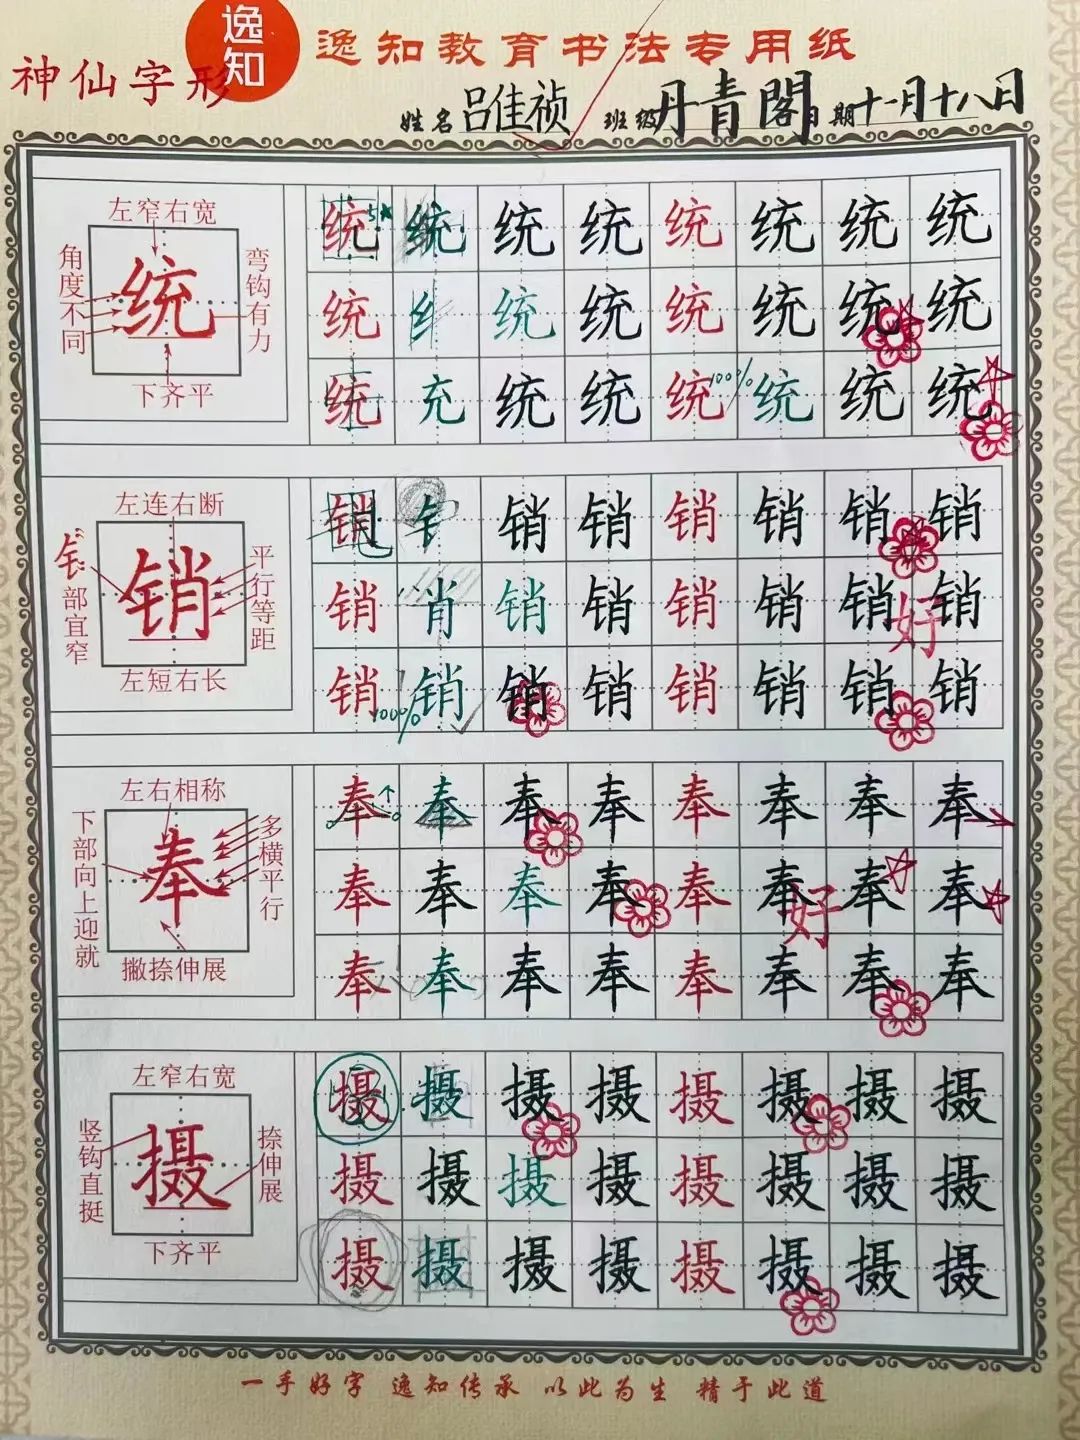 逸知
神仙字形
逸知教育书法专用纸
姓名 吕佳祯 班级 丹青閣 日期 十一月十八日
左窄右宽
角度不同
统
弯钩有力
下齐平
统 统 统 统 统 统 统 统
统 纟 统 统 统 统 统 统
统 充 统 统 统 100% 统 统 统
左连右断
“钅”部宜窄
销
平行等距
左短右长
销 钅 销 销 销 销 销 销
销 肖 销 销 销 销 销 好 销
销 100% 销 销 销 销 销 销 销
左右相称
下部向上迎就
奉
多横平行
撇捺伸展
奉 奉 奉 奉 奉 奉 奉 奉
奉 奉 奉 奉 奉 奉 好 奉 奉
奉 奉 奉 奉 奉 奉 奉 奉
左窄右宽
竖钩直挺
摄
捺伸展
下齐平
摄 摄 摄 摄 摄 摄 摄 摄
摄 摄 摄 摄 摄 摄 摄 摄
摄 摄 摄 摄 摄 摄 摄 摄
一手好字 逸知传承 以此为生 精于此道